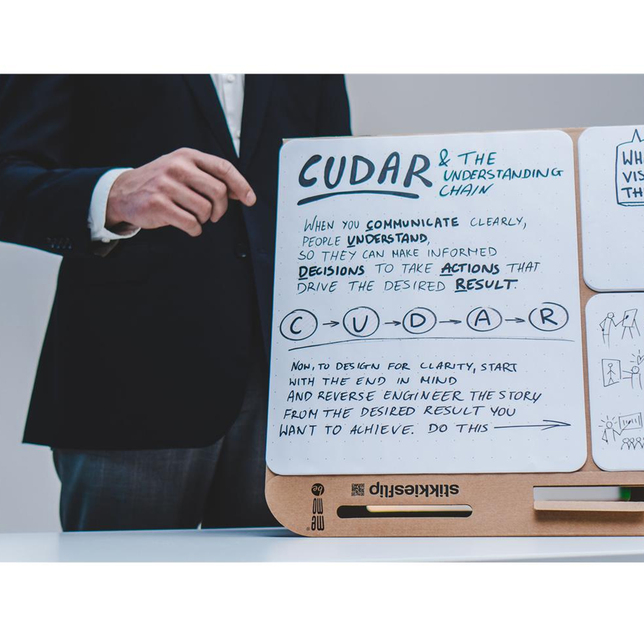 CUDAR & THE
UNDERSTANDING
CHAIN
WHEN YOU COMMUNICATE CLEARLY,
PEOPLE UNDERSTAND,
SO THEY CAN MAKE INFORMED
DECISIONS TO TAKE ACTIONS THAT
DRIVE THE DESIRED RESULT.
C → U → D → A → R
NOW, TO DESIGN FOR CLARITY, START
WITH THE END IN MIND
AND REVERSE ENGINEER THE STORY
FROM THE DESIRED RESULT YOU
WANT TO ACHIEVE. DO THIS →
WH
VIS
TH
stikkiesflip